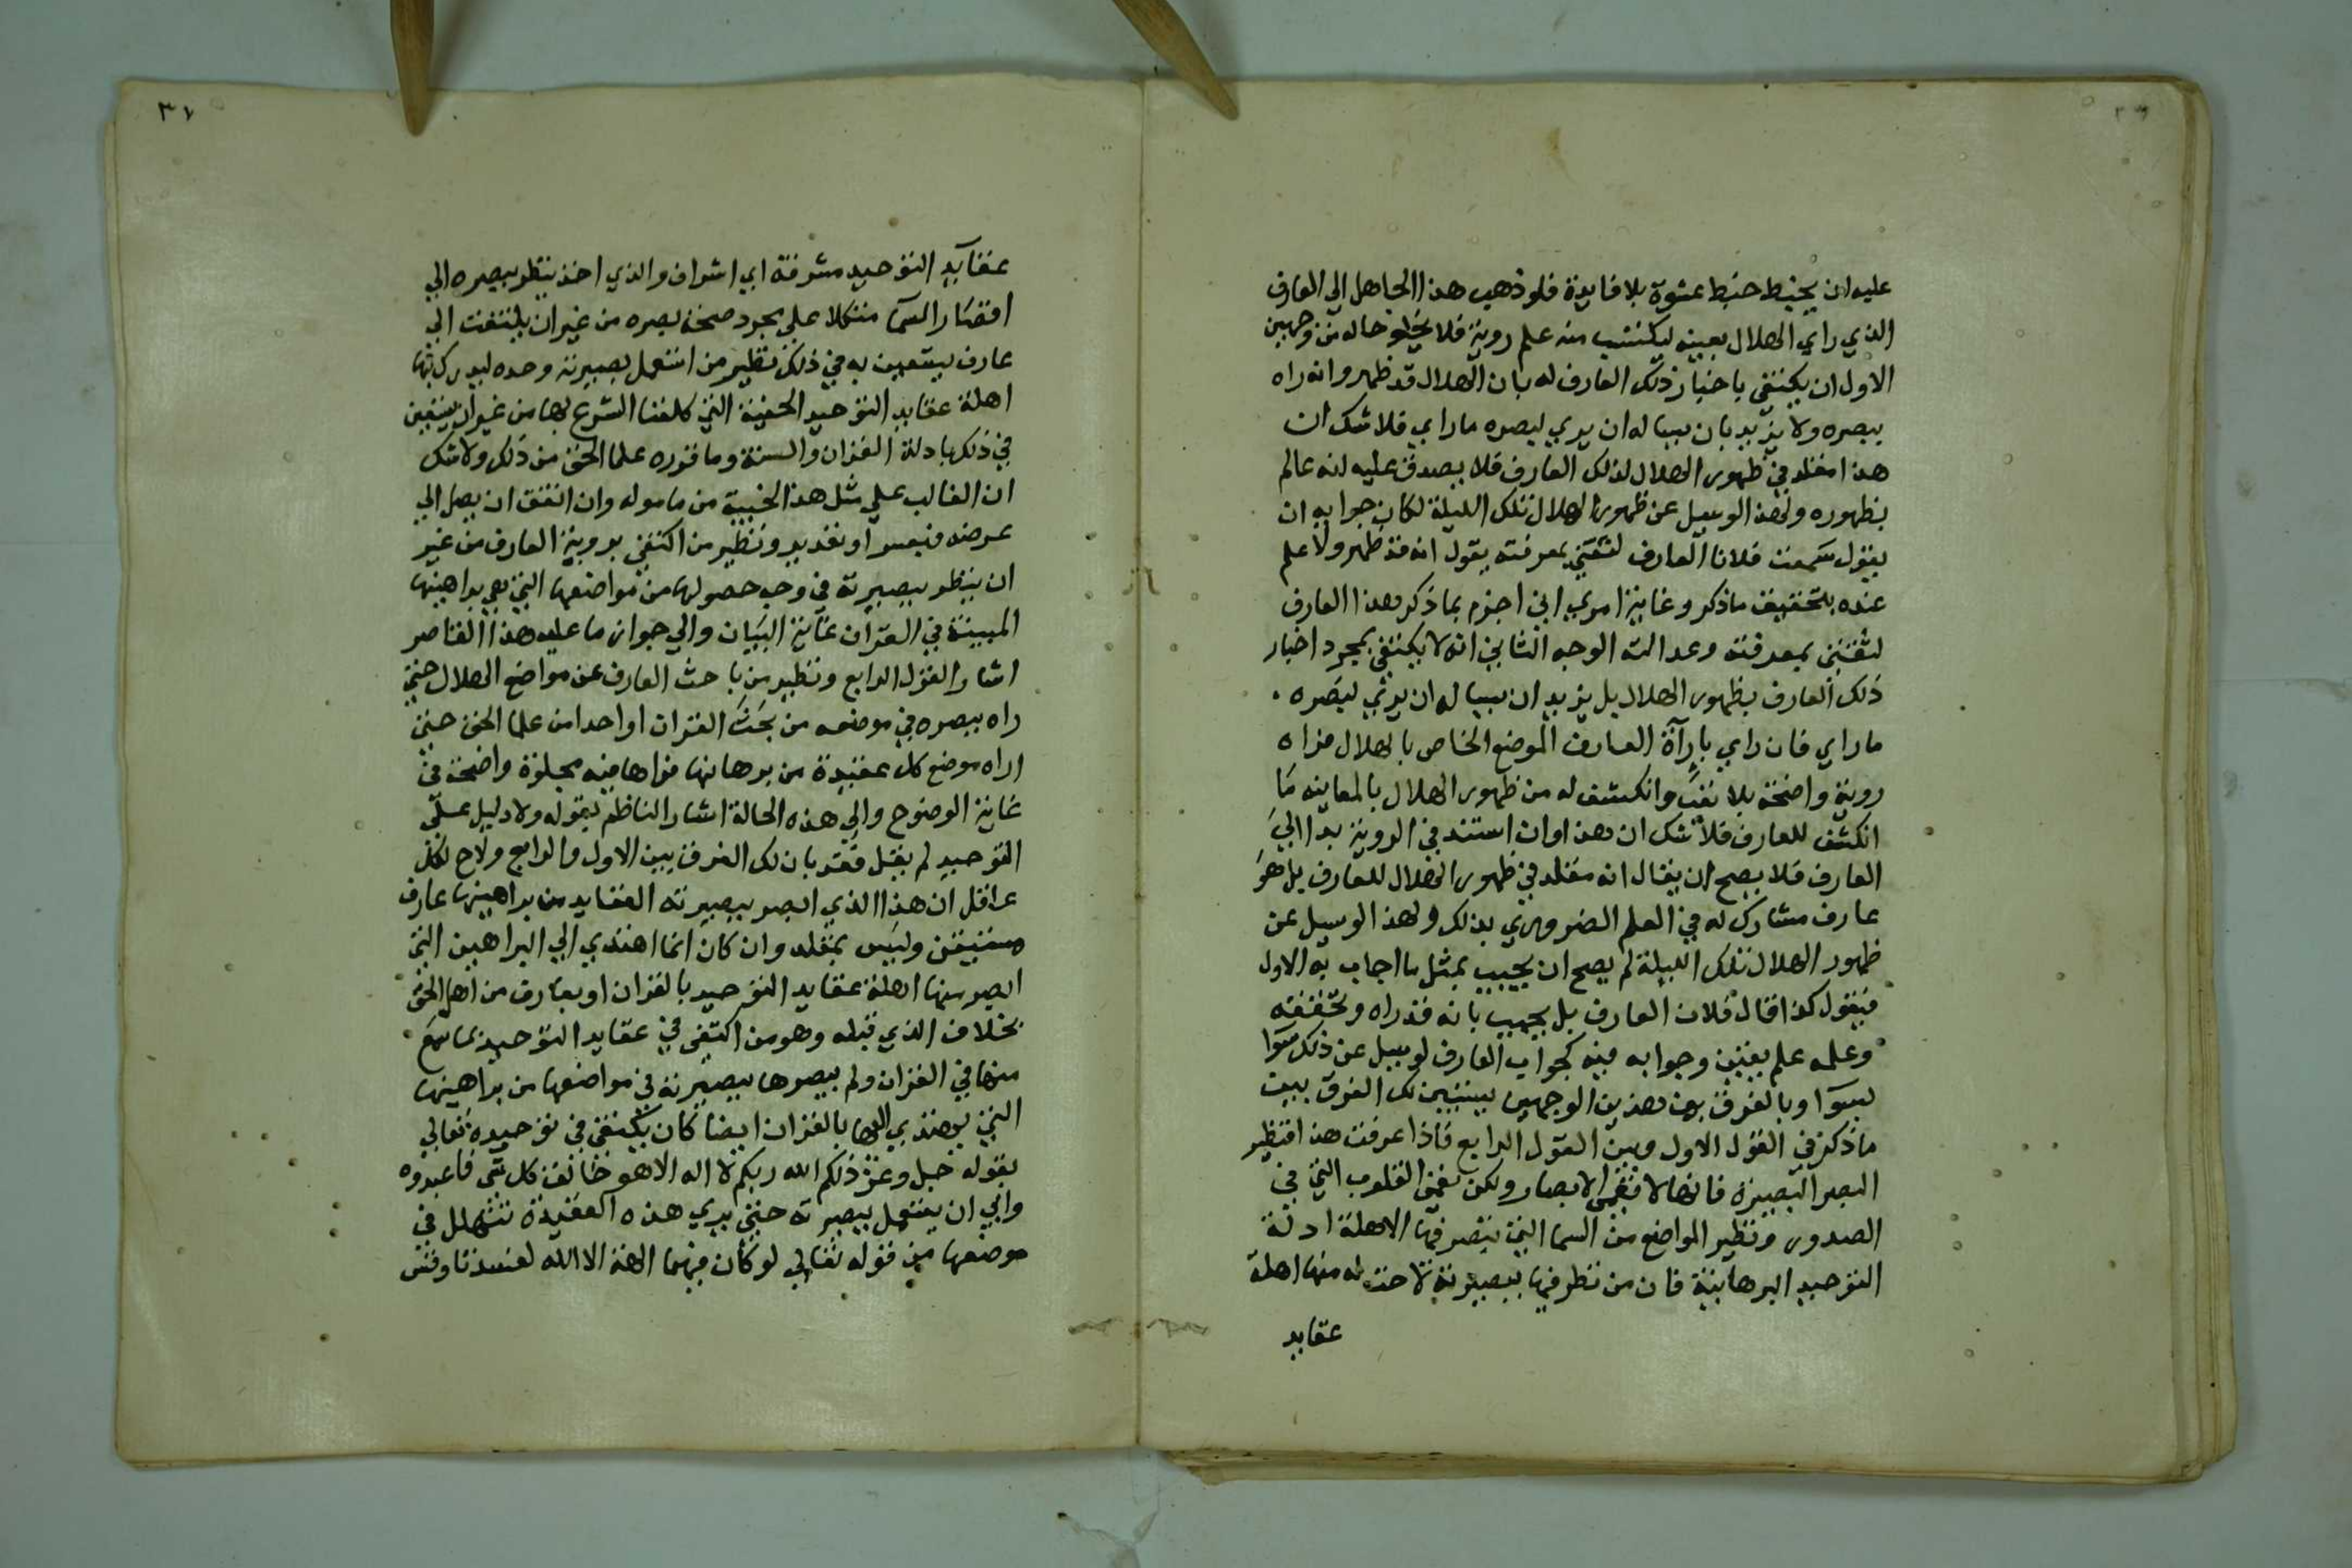 ٣٦
عليه ان يخبط خبط عشوة بلا فايدة فلو ذهب هذا الجاهل الي العارف
الذي راي الهلال بعينه ليكتسب منه علم روية فلا يخلو حاله من وجهين
الاول ان يكتفي باخبار ذلك العارف له بان الهلال قد ظهر وانه راه
ببصره ولا يزيد بان يساله ان يري ببصره ما راي فلا شك ان
هذا مقلد في ظهور الهلال لذلك العارف فلا يصدق عليه انه عالم
بظهوره ولهذا لو سيل عن ظهور الهلال تلك الليلة لكان جوابه ان
يقول سمعت فلانا العارف لثقتي بمعرفته يقول انه قد ظهر ولا علم
عنده بتحقيق ما ذكر وغاية امري اني اجزم بما ذكر هذا العارف
لثقتي بمعرفته وعدالته الوجه الثاني انه لا يكتفي بمجرد اخبار
ذلك العارف بظهور الهلال بل يزيد ان يساله ان يري ببصره
ما راي فان راي باراة العارف الموضع الخاص بالهلال فراه
روية واضحة بلا تعب وانكشف له من ظهور الهلال بالمعاينه ما
انكشف للعارف فلا شك ان هذا وان استند في الروية بدا الي
العارف فلا يصح ان يقال انه مقلد في ظهور الهلال للعارف بل هو
عارف مشارك له في العلم الضروري بذلك ولهذا لو سيل عن
ظهور الهلال تلك الليلة لم يصح ان يجيب بمثل ما اجاب به الاول
فيقول كذا قال فلان العارف بل يجيب بانه قد راه وتحققه
وعلمه علم يقين وجوابه فيه كجواب العارف لو سيل عن ذلك سوا
بسوا وبالفرق بين هذين الوجهين يستبين لك الفرق بين
ما ذكر في القول الاول وبين القول الرابع فاذا عرفت هذا فنظير
البصر البصيرة فانها لا تعمى الابصار ولكن تعمى القلوب التي في
الصدور ونظير المواضع من السما التي تبصر فيها الاهلة ادلة
التوحيد البرهانية فان من نظر فيها ببصيرته لاحت له منها اهلة
عقايد
٣٧
عقايد التوحيد مشرفة اي اشراق والذي اخذ ينظر ببصره الي
اقطار السما متكلا علي مجرد صحة بصره من غير ان يلتفت الي
عارف يستعين به في ذلك نظير من استعمل بصيرته وحده ليدرك بها
اهلة عقايد التوحيد الخفية التي كلفنا الشرع بها من غير ان يستعين
في ذلك بادلة القران والسنة وما قرره علما الحق من ذلك ولا شك
ان الغالب علي مثل هذا الخيبة من ماموله وان اتفق ان يصل الي
غرضه فبعسر او تقدير ونظير من اكتفي بروية العارف من غير
ان ينظر ببصيرته في وجه حصولها من مواضعها التي هي براهينها
المبينة في القران غاية البيان والي جواز ما عليه هذا القاصر
اشار القول الرابع ونظير من باحث العارف عن مواضع الهلال حتي
راه ببصره في موضعه من بحث القران او احدا من علما الحق حتي
اراه موضع كل عقيدة من برهانها فراها فيه مجلوة واضحة في
غاية الوضوح والي هذه الحالة اشار الناظم بقوله ولا دليل علي
التوحيد لم يقبل فقد بان لك الفرق بين الاول والرابع ولاح لكل
عاقل ان هذا الذي ابصر ببصيرته العقايد من براهينها عارف
مستيقن وليس بمقلد وان كان انما اهتدي الي البراهين التي
ابصر منها اهلة عقايد التوحيد بالقران او بعارف من اهل الحق
بخلاف الذي قبله وهو من اكتفي في عقايد التوحيد بما سمع
منها في القران ولم يبصرها ببصيرته في مواضعها من براهينها
التي يهتدي اليها بالقران ايضا كان يكتفي في توحيده تعالي
بقوله جل وعز ذلكم الله ربكم لا اله الا هو خالق كل شي فاعبدوه
وابي ان يستعمل بصيرته حتي يري هذه العقيدة تتهلل في
موضعها من قوله تعالي لو كان فيهما الهة الا الله لفسدتا وقس